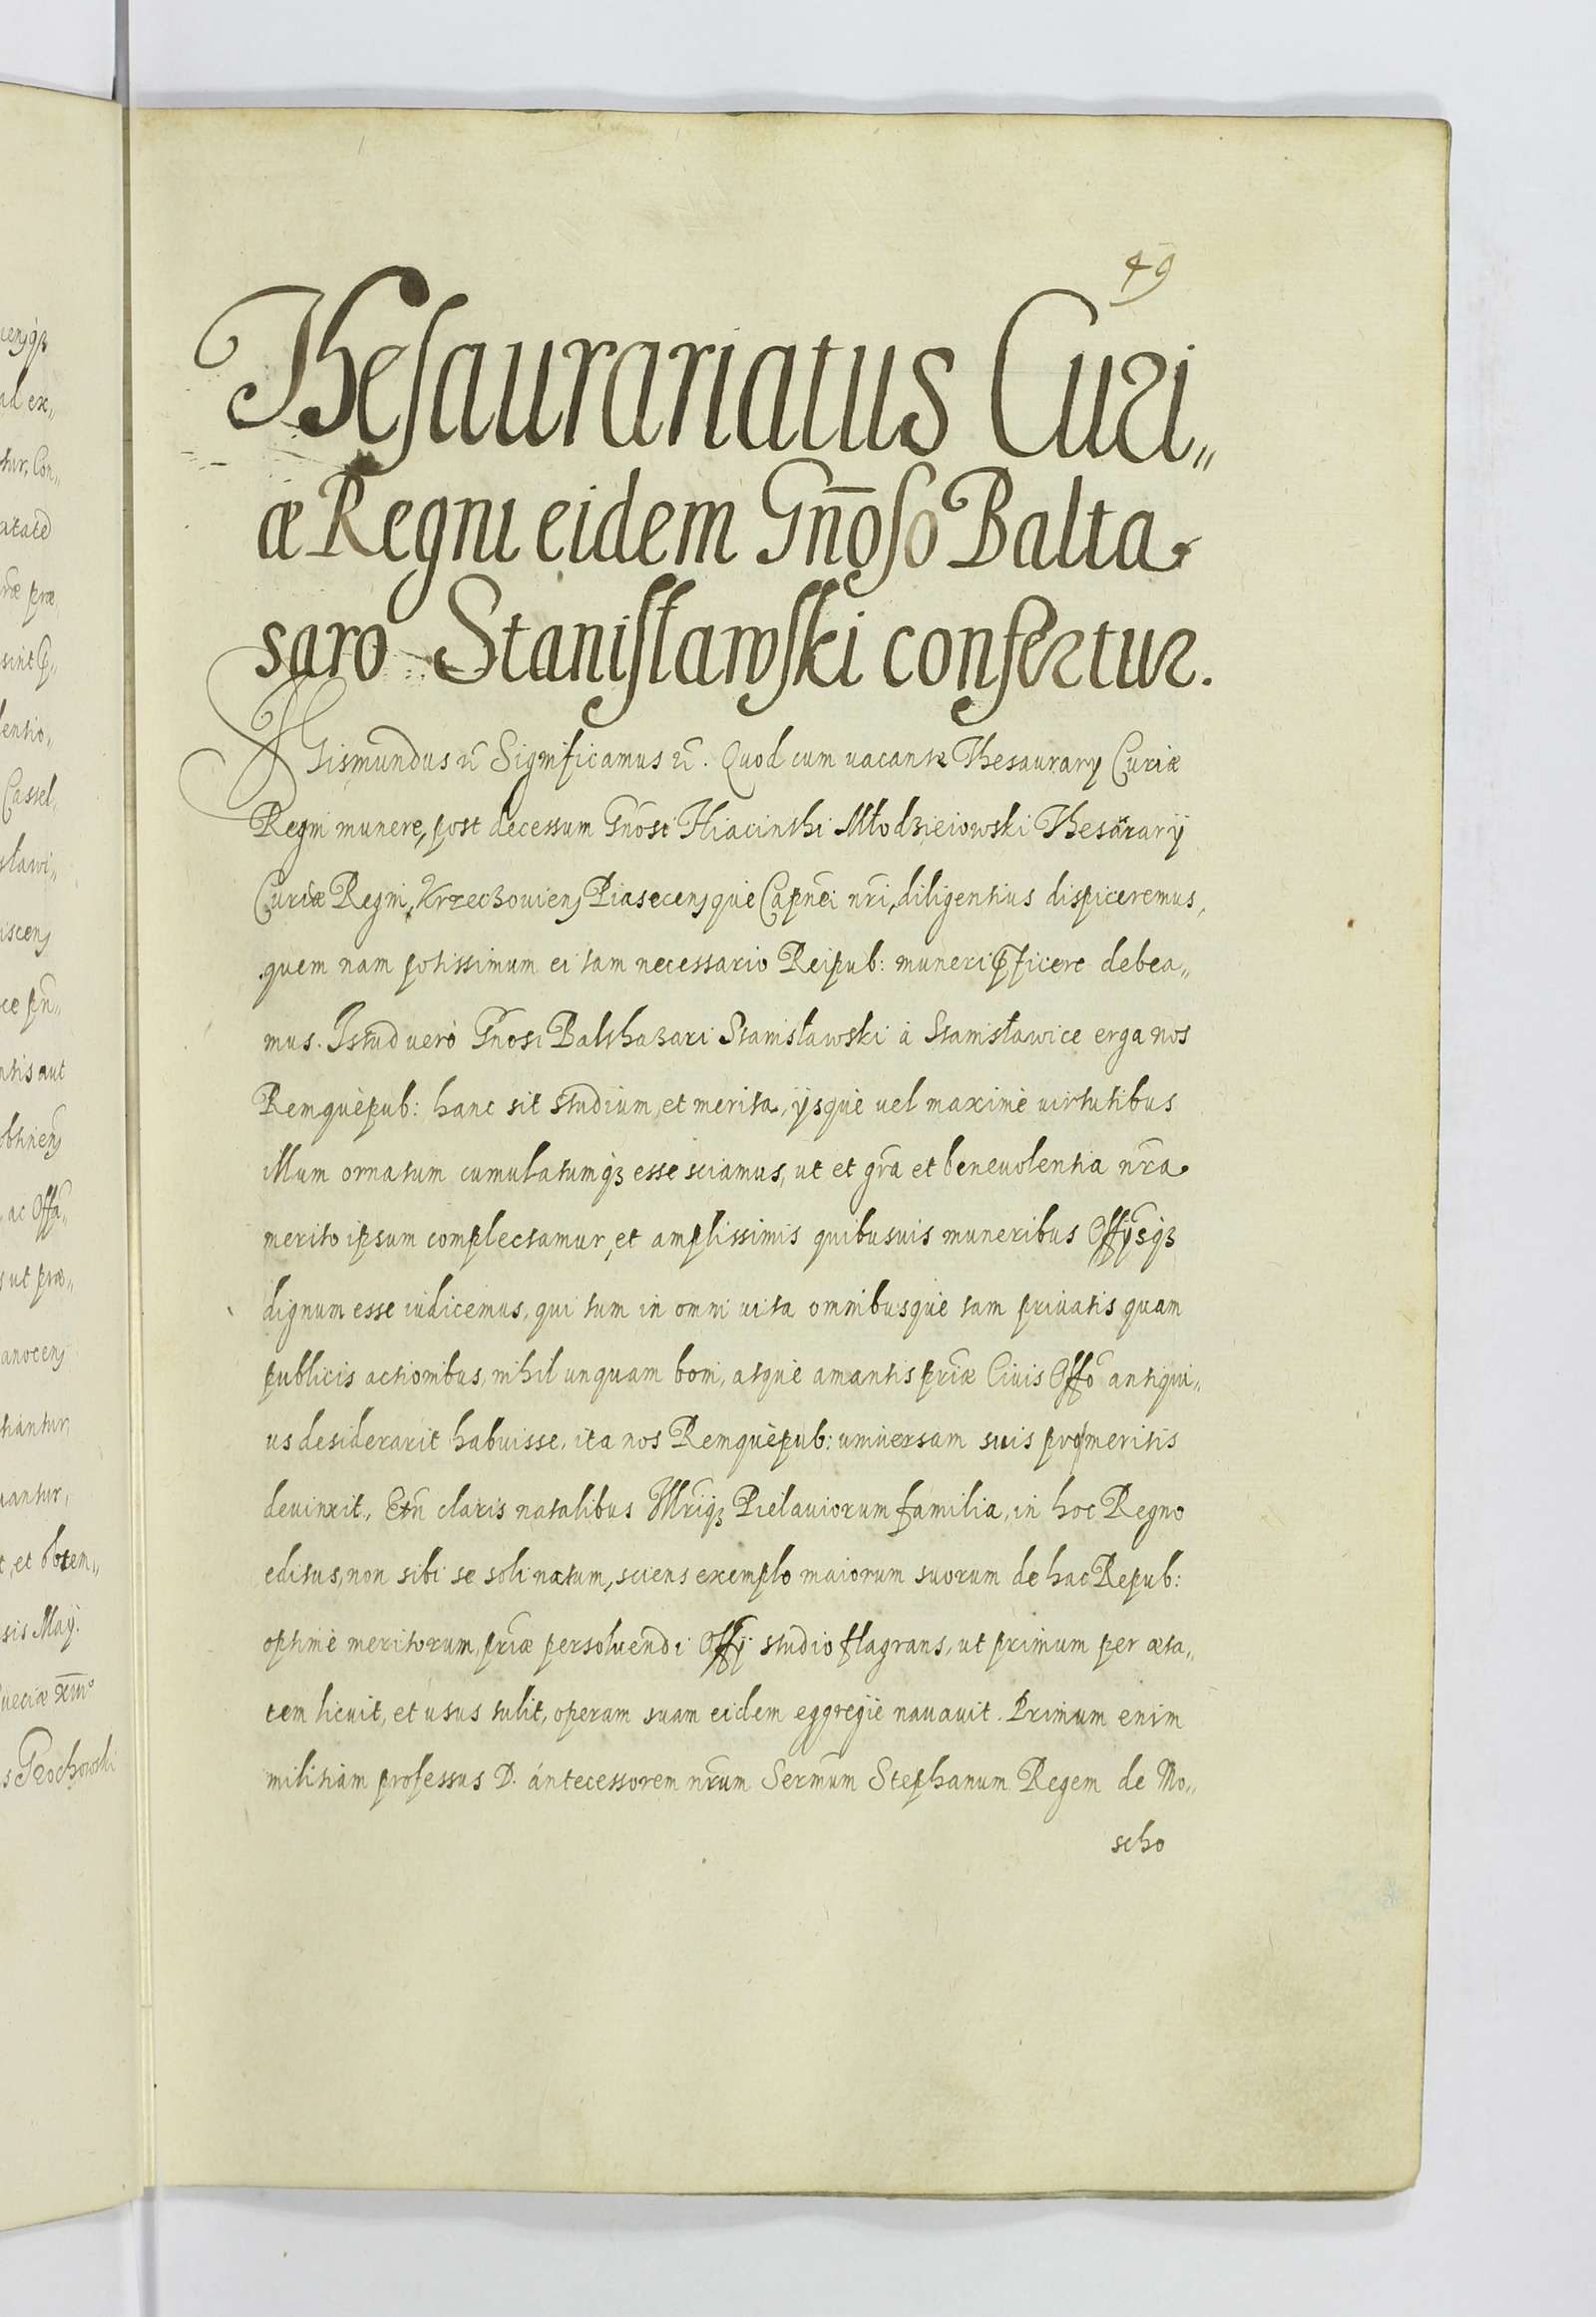 49
Thesaurariatus Curi„
æ Regni eidem Gn̄oso Balta
saro Stanisławski confertur.
Sigismundus etc̃ Significamus etc̃. Quod cum vacante Thesaurarÿ Curiæ
Regni munere, post decessum Gñosi Hiacinthi Młodzieiowski Thesaurarÿ
Curiæ Regni, Krzeczouieñ Piasecenqué Capnei nr̃i, diligentius dispiceremus,
quem nam potissimum ei tam necessario Reipub: muneri p̱ficere debea„
mus. Istud verò Gñosi Balthazari Stanisławski à Stanisławice erga nos
Remquèpub: hanc sit studium, et merita, ÿsquè vel maximè virtutibus
illum ornatum cumulatumqз esse sciamus, ut et gr̃a et beneuolentia nr̃a
merito ipsum complectamur, et amplissimis quibusuis muneribus Offÿsqз
dignum esse iudicemus, qui tum in omni vita omnibusquè tam priuatis quam
publicis actionibus, nihil unquam boni, atquè amantis pr̃iæ Ciuis Offõ antiqui„
us desiderarit habuisse, ita nos Remquèpub: uniuersam suis promeritis
deuinxit. Etñ claris natalibus Illr̃iqз Pielauiorum familia, in hoc Regno
editus, non sibi se soli natum, sciens exemplo maiorum suorum de hac Repub:
optimè meritorum, pr̃iæ persoluendi Offÿ studio flagrans, ut primum per æta„
tem licuit, et usus tulit, operam suam eidem eggregiè nauauit. Primum enim
militiam professus D. ántecessorem nr̃um Serm̃um Stephanum Regem de Mo„
scho
ad ex„
tur, Con„
atate
præ
lentio„
Cassel„
sławi„
iscenʒ
ntis aut
ac Offã„
ut præ„
anocenʒ
tiantur
uantur,
t, et obtem„
sis Maÿ.
ueciæ XIII°
s Grochowski